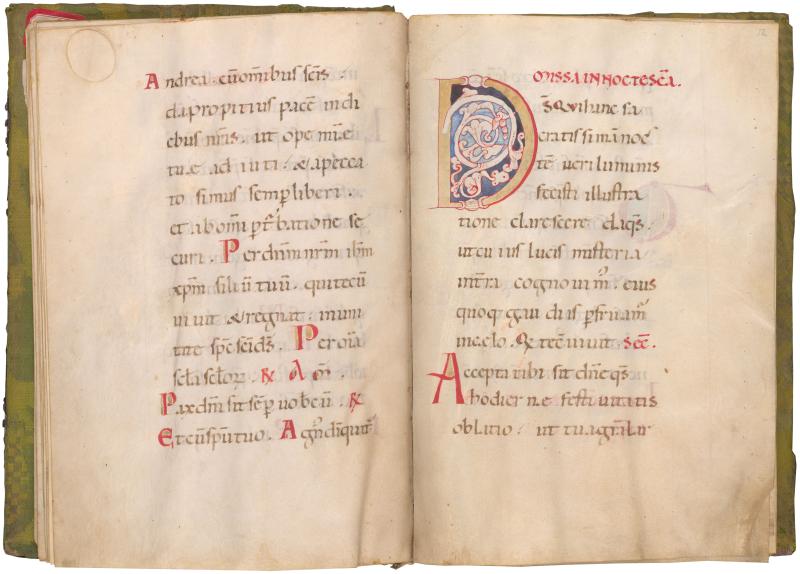 Andrea. cū omībus scīs
da propitius pacē in di
ebus nrīs. ut ope miæ
tuæ adiuti. & a pecca
to simus semp liberi.
et ab omī ptbatione se
curi. Per dnm nrm ihm
xpm filiū tuū. qui tecū
uiuit & regnat. in uni
tate spc scī ds. Per oīa
scla sclor. R Am.
Pax dnī sit sēp uobcū. R
Et cū spū tuo. Agn dī qui t
12
MISSA IN NOCTE SCĀ.
DS qui hanc sa
cratissimā noc
tē ueri luminis
fecisti illustra
tione clarescere. da qs.
ut cuius lucis misteria
in tra cognouim. eius
quoq gaudiis pfruam
in celo. Q tec uiuit. Sec.
Accepta tibi sit dne qs
hodierne festiuitatis
oblatio. ut tua gra lar